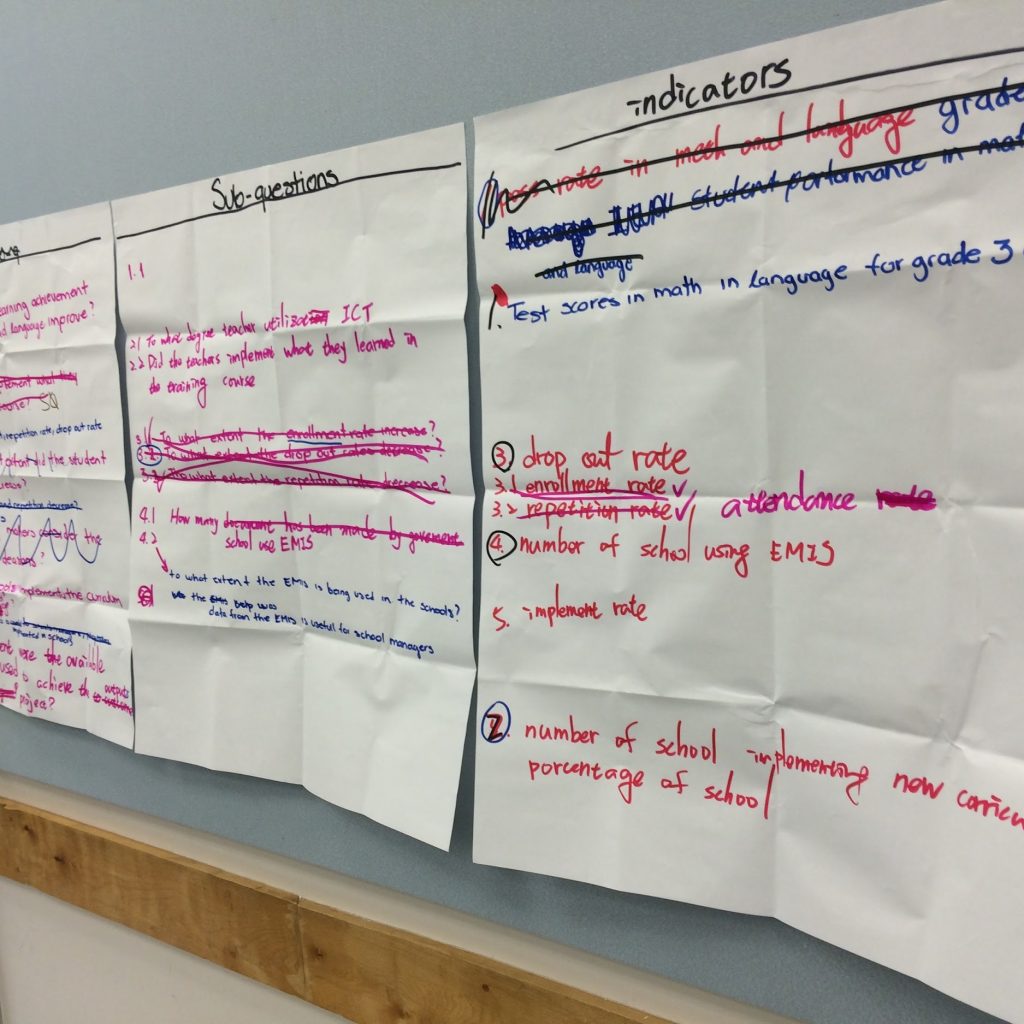 earning achievement
d language improve?
SQ
, repetition rate, drop out rate
extent did the student
and repetition decrease?
the
implement the curriculum
in schools
ent were the available
used to achieve the outputs
project?
Sub-questions
1.1
2.1 To what degree teacher utiliz ICT
2.2 Did the teachers implement what they learned in
the training course
3.1 To what extent the enrollment rate increase?
3.2 To what extent the drop out rates decrease?
3.3 To what extent the repetition rate decrease?
4.1 How many document has been made by goverment
4.2 school use EMIS
to what extent the EMIS is being used in the schools?
the EMIS help
data from the EMIS is useful for school managers
indicators
pass rate in math and language grade
average student performance in mat
and language
1. Test scores in math in language for grade 3
3 drop out rate
3.1 enrollment rate ✓
3.2 repetition rate ✓ attendance rate
4. number of school using EMIS
5. implement rate
2. number of school implementing new corricu
porcentage of school